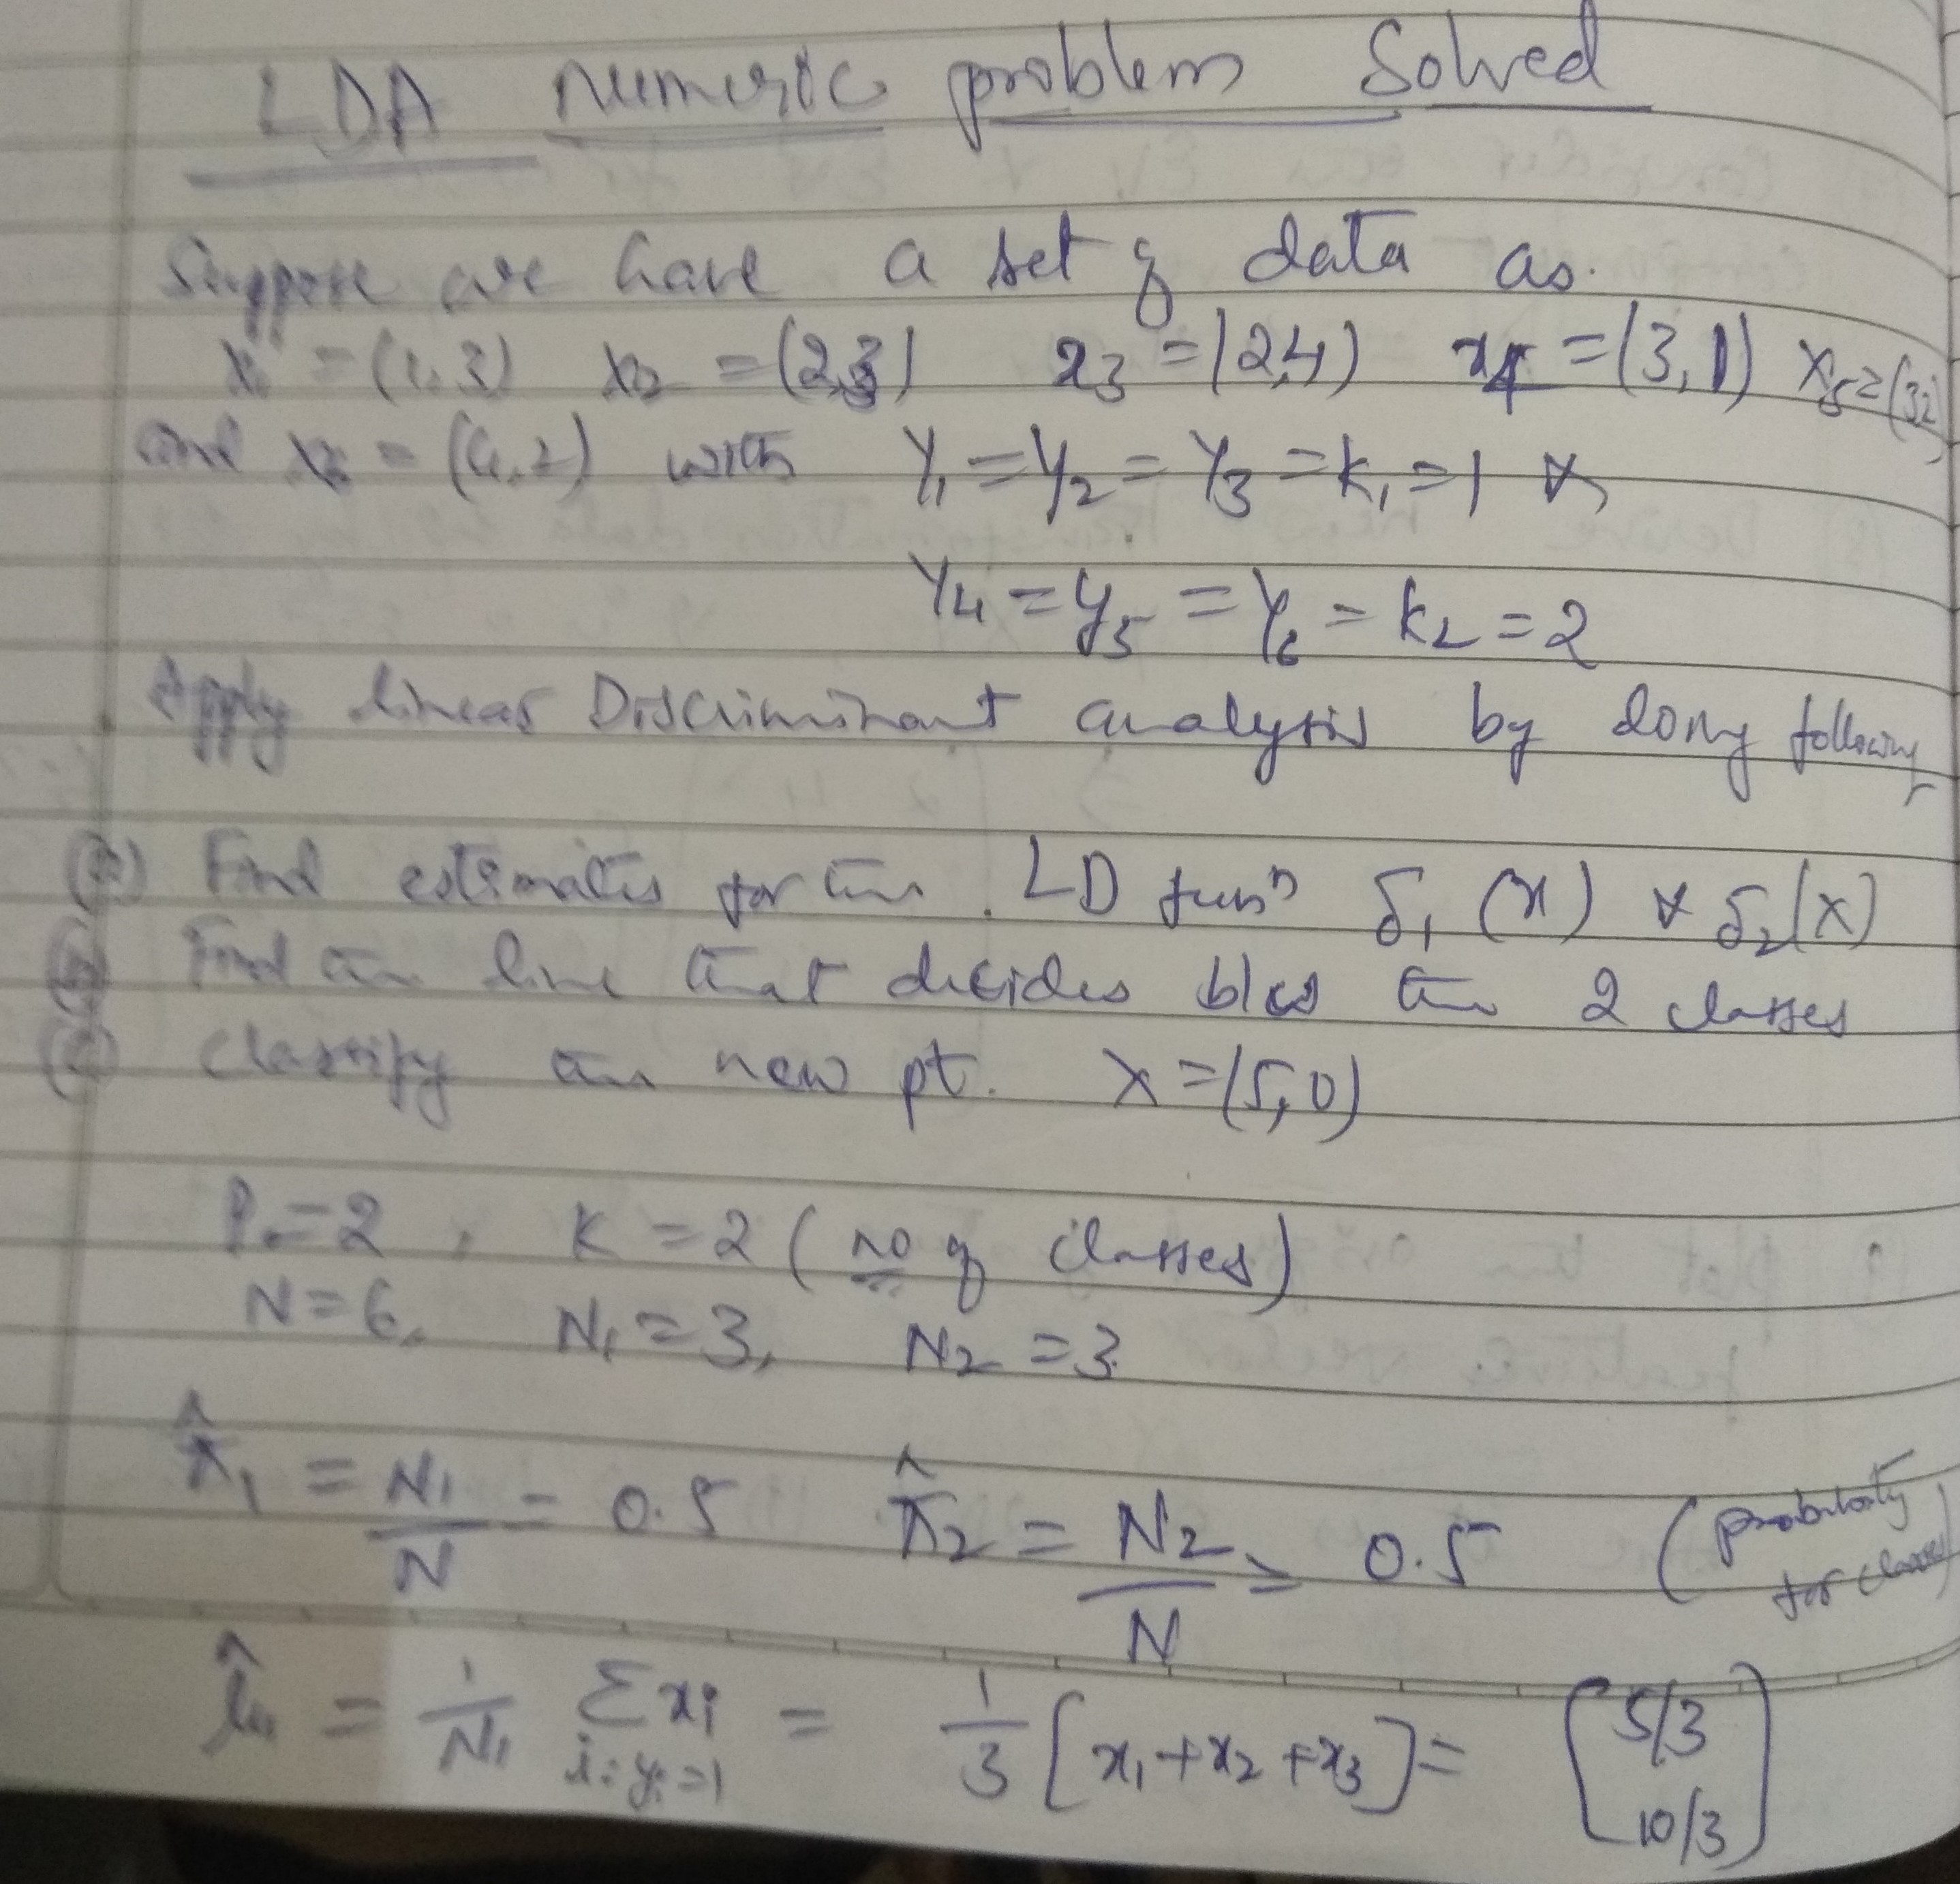 LDA Numeric problem Solved
Suppose we have a set of data as.
x1 = (1,3) x2 = (2,3) x3 = (2,4) x4 = (3,1) x5 = (3,2)
and x6 = (4,2) with y1 = y2 = y3 = k1 = 1 &
y4 = y5 = y6 = k2 = 2
Apply linear Discriminant analysis by doing following
(a) Find estimates for the LD funⁿ δ1 (x) & δ2(x)
(b) Find the line that decides b/w the 2 classes
(c) Classify the new pt. x = (5,0)
P = 2, K = 2 (no of classes)
N = 6, N1 = 3, N2 = 3
π̂1 = N1/N = 0.5 π̂2 = N2/N = 0.5 (probability for classes)
μ̂1 = 1/N1 Σ xi i:yi=1 = 1/3 [x1 + x2 + x3] = [5/3 10/3]